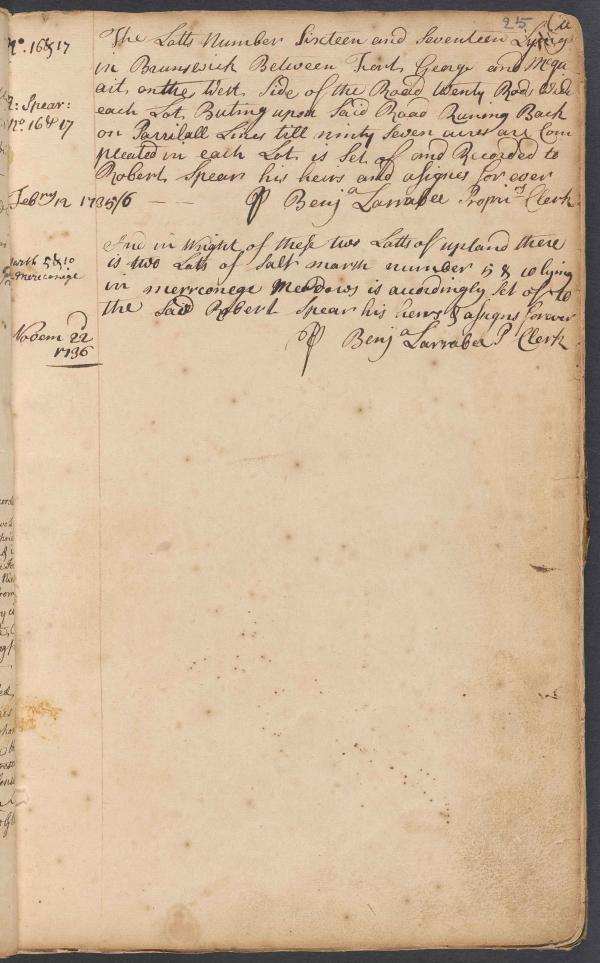 25
No. 16 & 17
The Latts Number Sixteen and Seventeen Lying
in Brunswick Between Fort George and Maqu
ait, on the West Side of the Road twenty Rods Wide
each Lot Buting upon Said Road Runing Back
R: Spear:
No. 16 & 17
on Parrilall Lines till ninty Seven acres are Com
pleated in each Lot is Set of and Recorded to
Robert Spear his heirs and asignes for ever
Febry 12 1735/6 — — ⅌ Benja Larrabee Propri's Clerk
And in Wright of these two Latts of upland there
is two Lots of Salt marsh number 5 & 10 lying
marsh 5 & 10
mereconege
in merreconege Meadows is acordingly Set of to
the Said Robert Spear his heirs & asigns forever
Novem 22d
1736
⅌ Benja Larrabee P Clerk